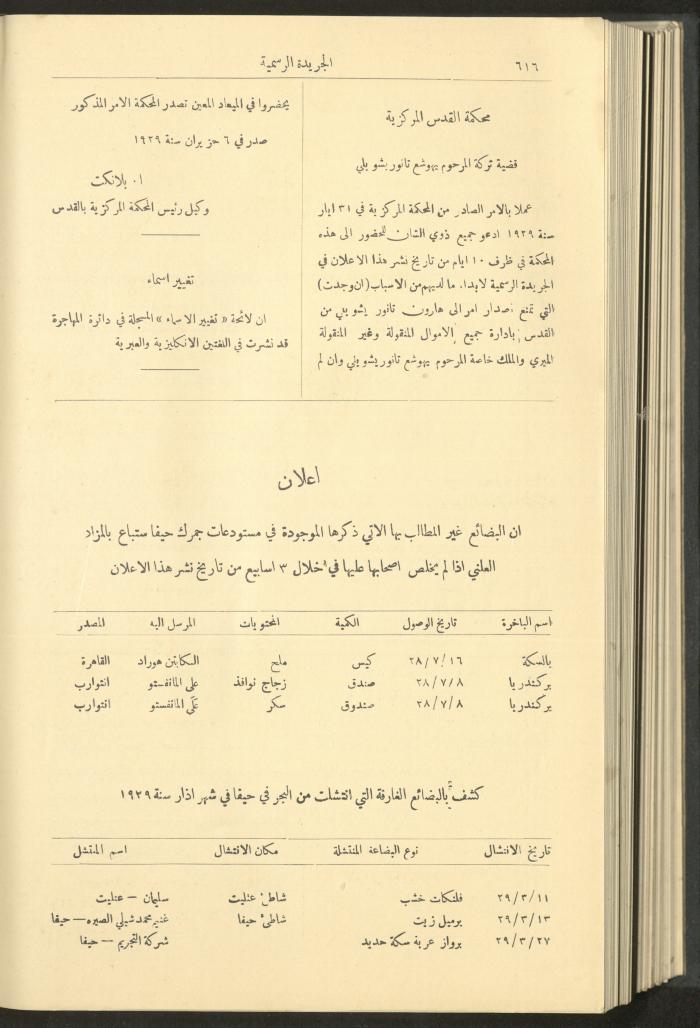 ٦١٦
الجريدة الرسمية
محكمة القدس المركزية
قضية تركة المرحوم يهوشع تانور بشويلي
عملا بالامر الصادر من المحكمة المركزية في ٣١ ايار
سنة ١٩٢٩ ادعو جميع ذوي الشأن للحضور الى هذه
المحكمة في ظرف ١٠ ايام من تاريخ نشر هذا الاعلان في
الجريدة الرسمية لابداء ما لديهم من الاسباب (ان وجدت)
التي تمنع اصدار امر الى هارون تانور يشويلي من
القدس بادارة جميع الاموال المنقولة وغير المنقولة
الميري والملك خاصة المرحوم يهوشع تانور يشويلي وان لم
يحضروا في الميعاد المعين تصدر المحكمة الامر المذكور
صدر في ٦ حزيران سنة ١٩٢٩
ا. بلانكت
وكيل رئيس المحكمة المركزية بالقدس
تغيير اسماء
ان لائحة «تغيير الاسماء» المسجلة في دائرة المهاجرة
قد نشرت في اللغتين الانكليزية والعبرية
اعلان
ان البضائع غير المطالب بها الاتي ذكرها الموجودة في مستودعات جمرك حيفا ستباع بالمزاد
العلني اذا لم يخلص اصحابها عليها في خلال ٣ اسابيع من تاريخ نشر هذا الاعلان
اسم الباخرة تاريخ الوصول الكمية المحتويات المرسل اليه المصدر
بالسكة ٢٨/٧/١٦ كيس ملح الكابتن هوراد القاهرة
بركندريا ٢٨/٧/٨ صندق زجاج نوافذ على المانفستو انتوارب
بركندريا ٢٨/٧/٨ صندوق سكر على المانفستو انتوارب
كشف بالبضائع الغارقة التي انتشلت من البحر في حيفا في شهر اذار سنة ١٩٢٩
تاريخ الانتشال نوع البضاعة المنتشلة مكان الانتشال اسم المنتشل
٢٩/٣/١١ فلنكات خشب شاطئ عتليت سليمان – عتليت
٢٩/٣/١٣ برميل زيت شاطئ حيفا غنيم محمد شيلي الصيره – حيفا
٢٩/٣/٢٧ برواز عربة سكة حديد شركة التجريم – حيفا